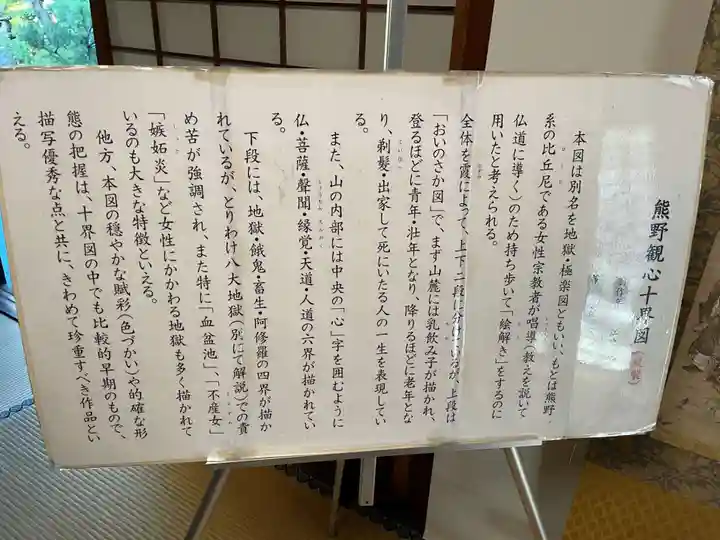 熊野観心十界図
本図は別名を地獄・極楽図ともいい、もとは熊野
系の比丘尼である女性宗教者が唱導（教えを説いて
仏道に導く）のため持ち歩いて「絵解き」をするのに
用いたと考えられる。
全体を霞によって、上下二段に分けているが、上段は
「おいのさか図」で、まず山麓には乳飲み子が描かれ
登るほどに青年・壮年となり、降りるほどに老年とな
り、剃髪・出家して死にいたる人の一生を表現してい
る。
また、山の内部には中央の「心」字を囲むように
仏・菩薩・聲聞・縁覚・天道・人道の六界が描かれてい
る。
下段には、地獄・餓鬼・畜生・阿修羅の四界が描か
れているが、とりわけ八大地獄（別にて解説）での責
め苦が強調され、また特に「血盆池」、「不産女」
「嫉妬炎」など女性にかかわる地獄も多く描かれて
いるのも大きな特徴といえる。
他方、本図の穏やかな賦彩（色づかい）や的確な形
態の把握は、十界図の中でも比較的早期のもので、
描写優秀な点と共に、きわめて珍重すべき作品とい
える。